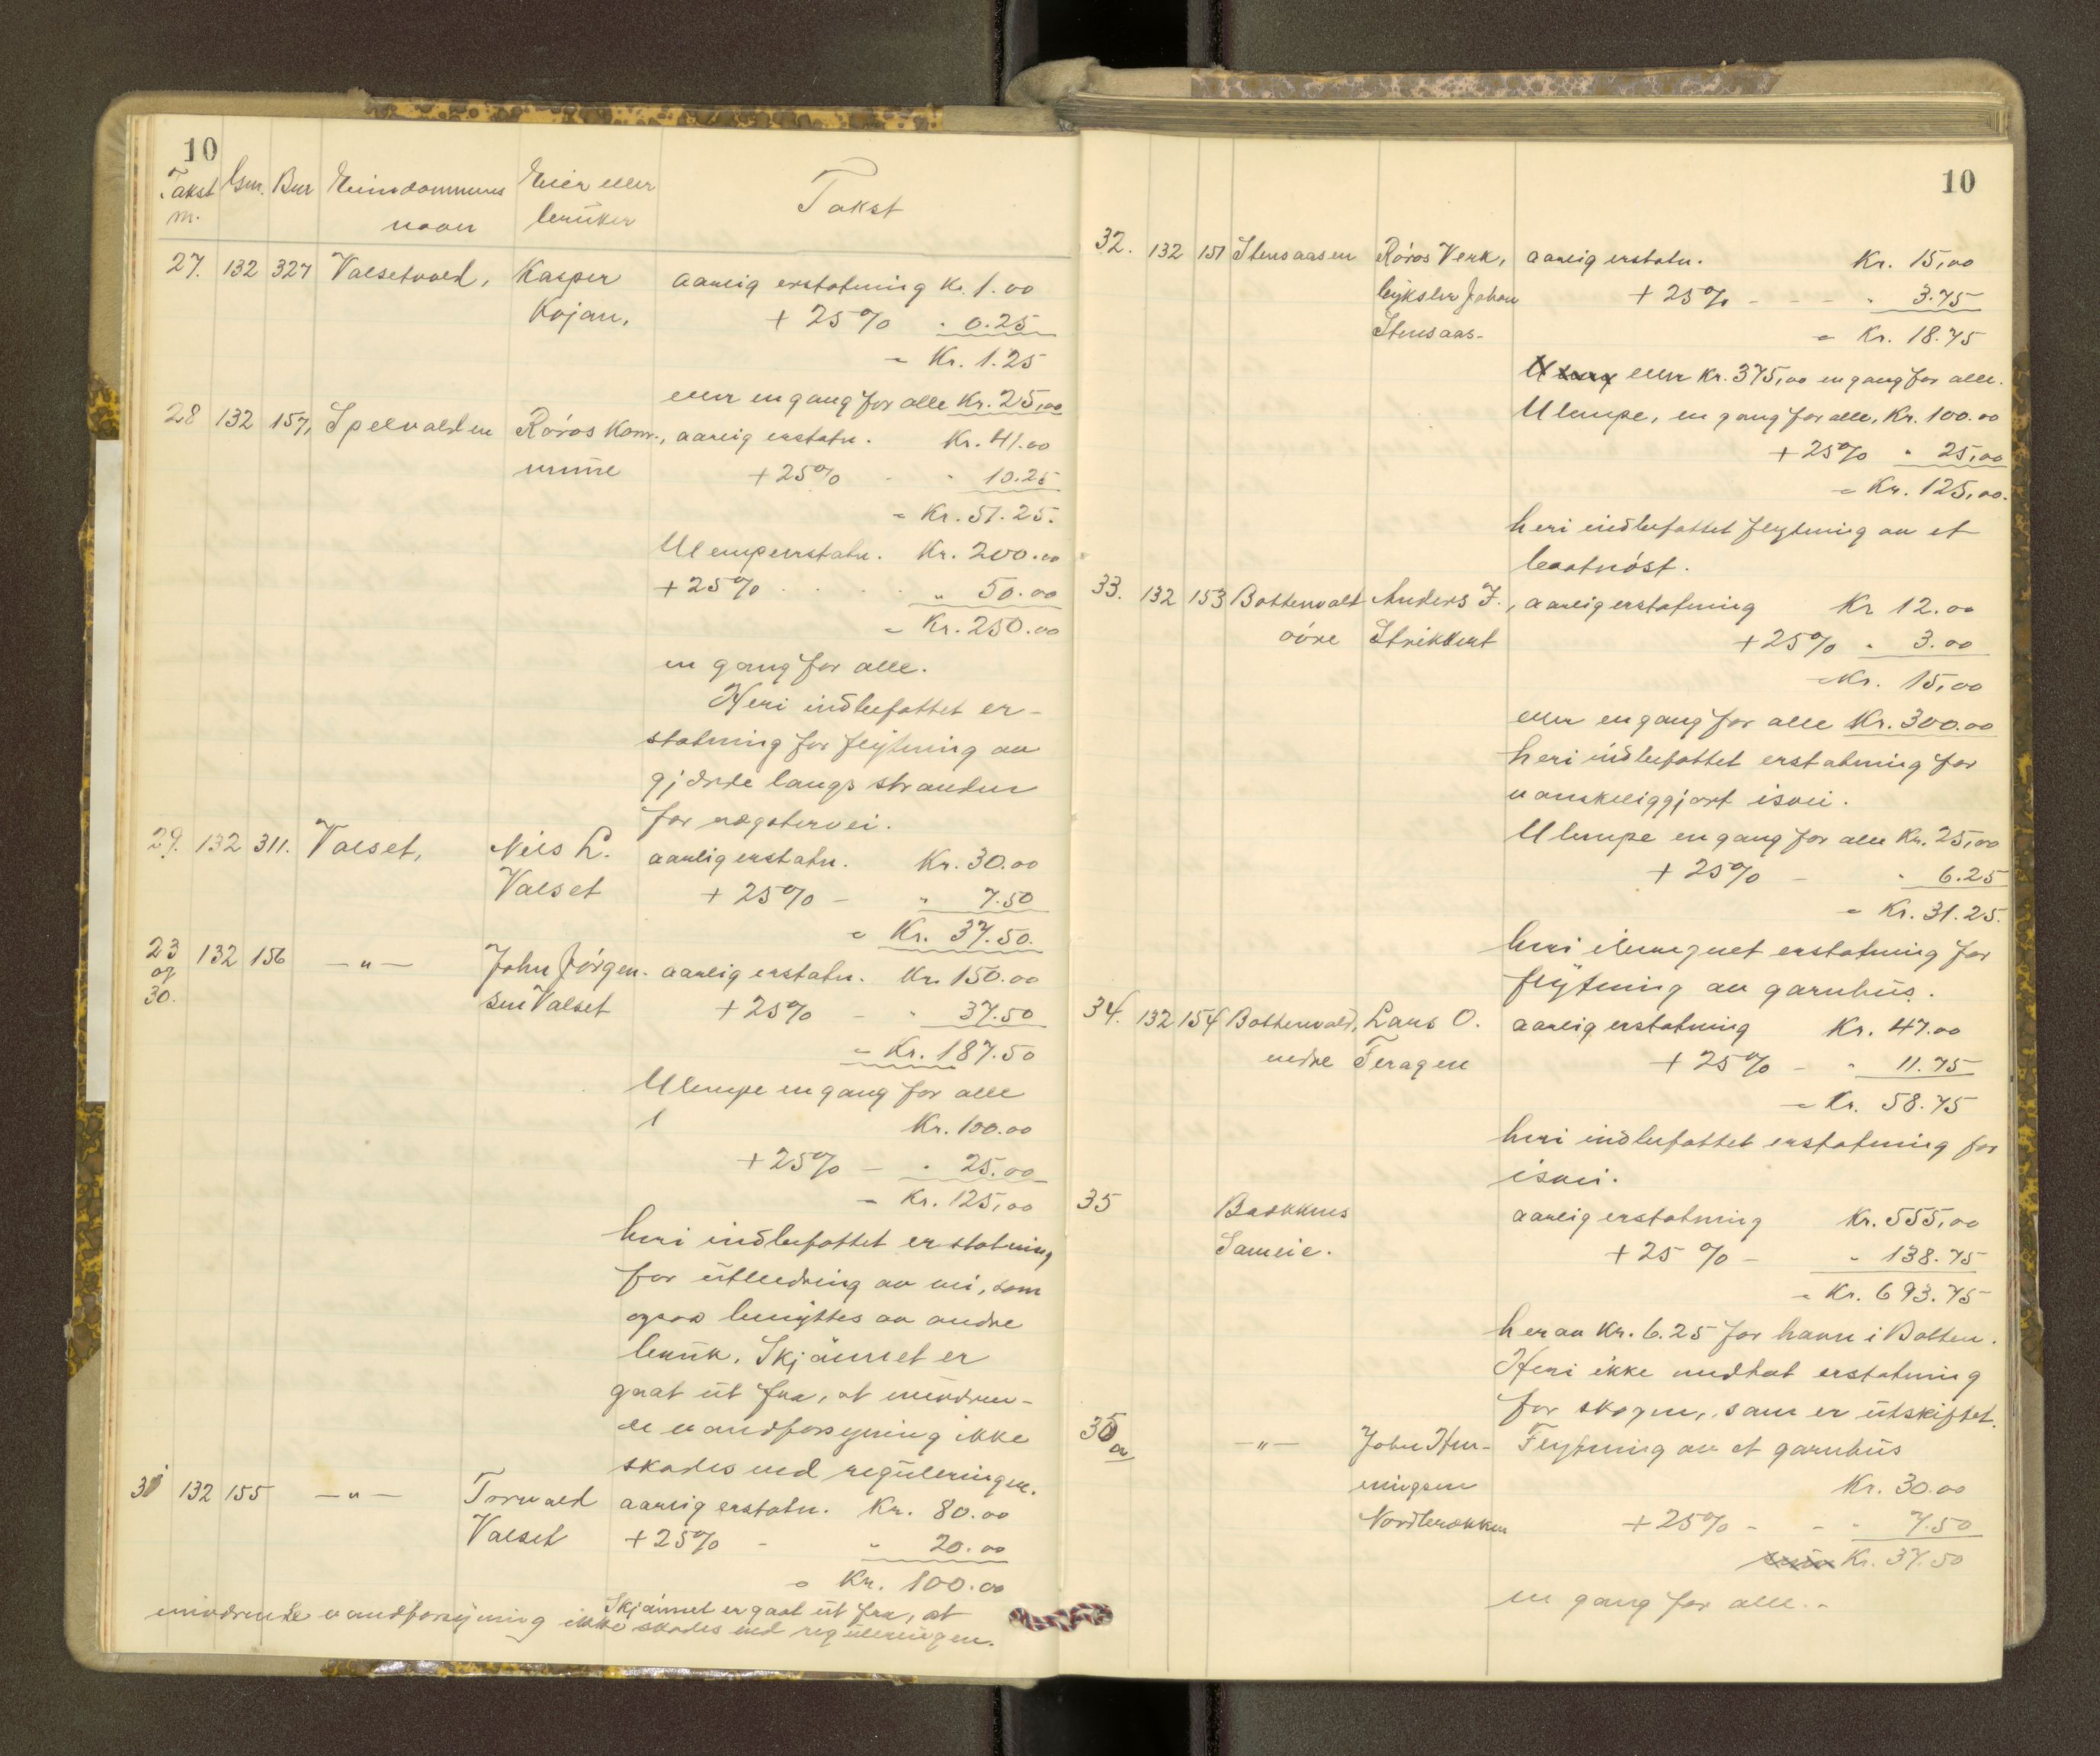 10
Takst Gnr. Bnr Eiendommens Eier eller Takst
nr. navn bruker
27. 132 327 Valsetvold, Kasper aarlig erstatning Kr. 1.00
Kojan, + 25% " 0.25
= Kr. 1.25
eller en gang for alle Kr. 25,00
28 132 157, Spelvolden Röros Kom-, aarlig erstatn. Kr. 41.00
mune +25% - " 10.25
= Kr. 51.25.
Ulempeerstatn. Kr. 200.00
+25% . . . . " 50.00
= Kr. 250.00
en gang for alle.
Heri indbefattet er-
statning for flytning av
gjærde langs stranden
for
29. 132 311. Valset, Nils L. aarlig erstatn. Kr. 30.00
Valset + 25% - " 7.50
= Kr. 37.50.
23 132 156 —"— John Jörgen- aarlig erstatn. Kr. 150.00
og
30. sen Valset +25% - " 37.50
= Kr. 187.50
Ulempe en gang for alle
Kr. 100.00
+25% - " 25.00
= Kr. 125,00
heri indbefattet erstatning
for utbedring av vei, som
ogsaa benyttes av andre
bruk. Skjönnet er
gaat ut fra, at nuværen-
de vandforsyning ikke
skades ved reguleringen.
31 132 155 —"— Torvald aarlig erstatn. Kr. 80.00
Valset +25% - " 20.00
= Kr. 100.00
Skjönnet er gaat ut fra, at
nuværende vandforsyning ikke skades ved reguleringen.
10
32. 132 151 Stensaasen Röros Verk, aarlig erstatn. Kr. 15,00
bygsler Johan +25% - - - " 3.75
Stensaas- = Kr. 18.75
eller Kr. 375,00 en gang for alle.
Ulempe, en gang for alle, Kr. 100.00
+25% " 25,00
= Kr. 125,00.
heri indbefattet flytning av et
baatnöst.
33. 132 153 Bottenvold Anders J., aarlig erstatning Kr 12.00
övre Strikkert +25% " 3.00
= Kr. 15,00
eller en gang for alle Kr. 300.00
heri indbefattet erstatning for
vanskeliggjort isvei.
Ulempe en gang for alle Kr. 25,00
+25% - " 6.25
= Kr. 31.25.
heri iberegnet erstatning for
flytning av garnhus.
34. 132 154 Bottenvold, Lars O. aarlig erstatning Kr. 47.00
nedre Feragen +25% - " 11.75
= Kr. 58.75
heri indbefattet erstatning for
isvei.
35 Brækkens aarlig erstatning Kr. 555,00
Sameie. +25 % - " 138.75
= Kr. 693.75
herav Kr. 6.25 for havn i Botten.
Heri ikke medtat erstatning
for skogen, som er utskiftet.
35 —"— John Hen- Flytning av et garnhus
a ningsen Kr. 30.00
Nordbrækken +25% - - " 7.50
Kr. 37.50
en gang for alle.-